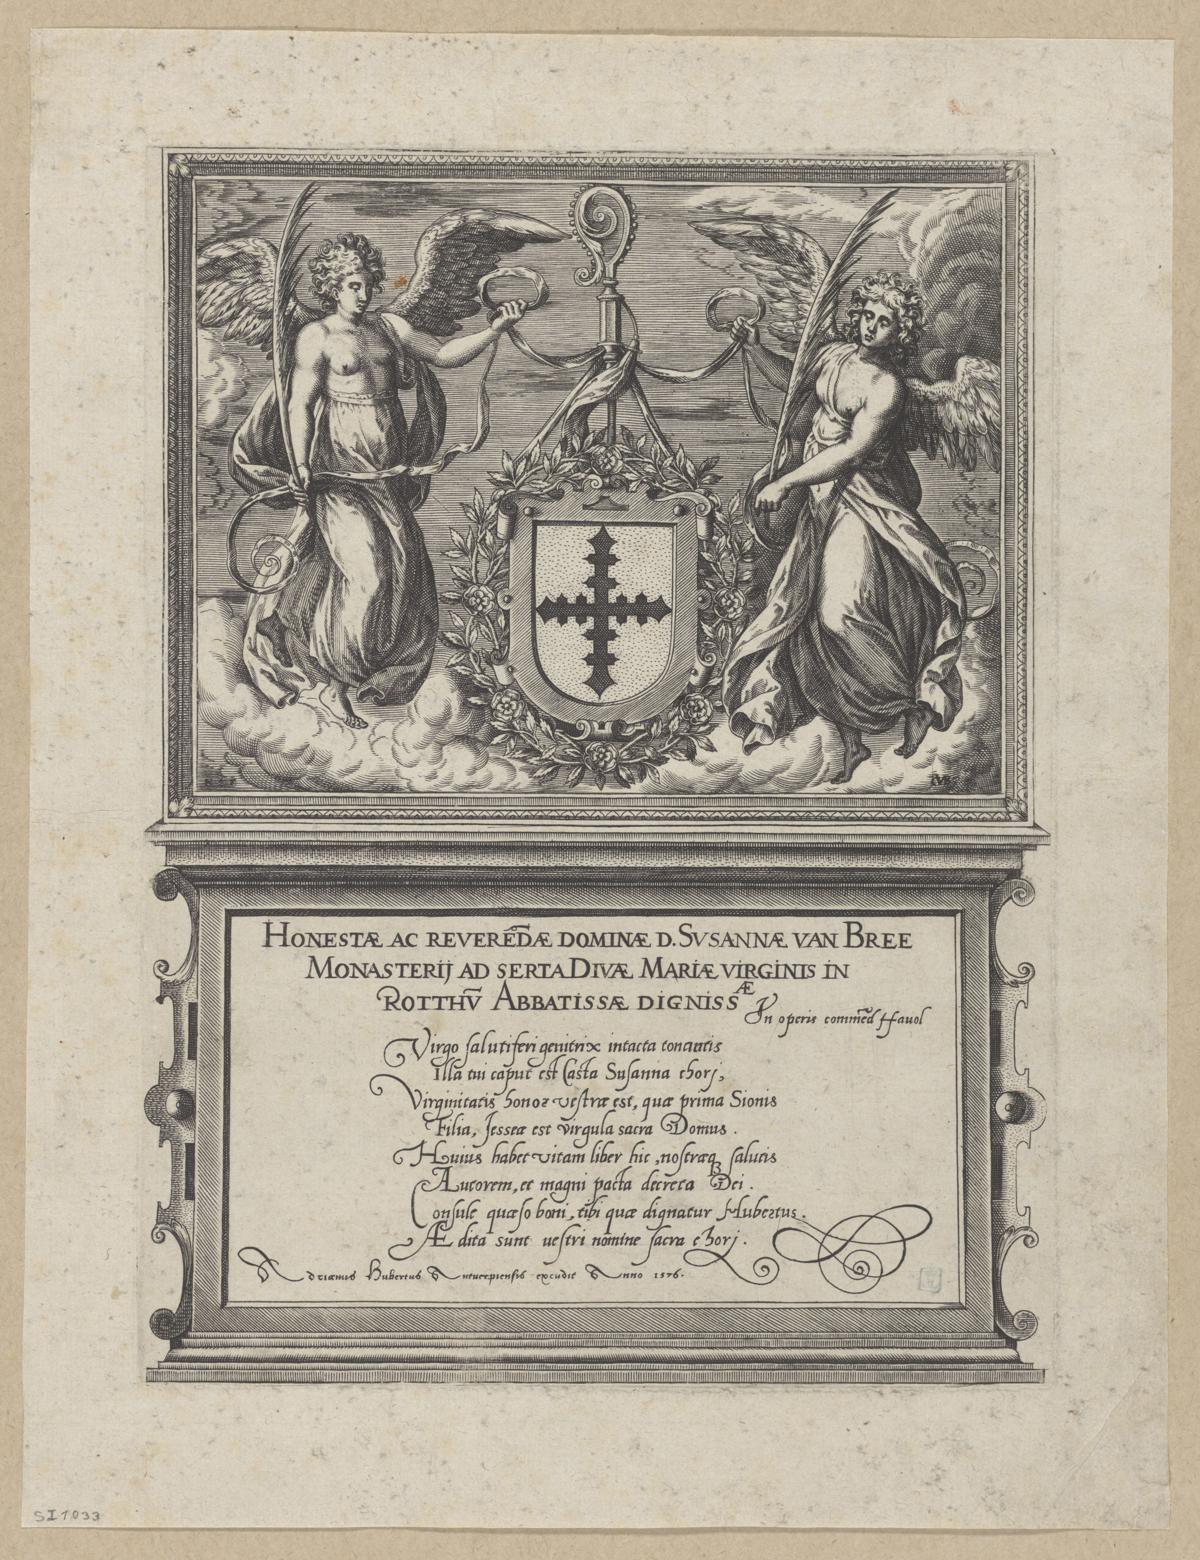 HONESTÆ AC REVERĒDÆ DOMINÆ D. SVSANNÆ VAN BREE
MONASTERIJ AD SERTA DIVÆ MARIÆ VIRGINIS IN
ROTTHV̄ ABBATISSÆ DIGNISSÆ
In operis commēd
Virgo salutiferi genitrix intacta tonantis
Illa tui caput est Casta Susanna chori,
Virginitatis honor vestræ est, quæ prima Sionis
Filia, Jesseæ est virgula sacra Domus.
Huius habet vitam liber hic, nostræq₃ salutis
Autorem, et magni pacta decreta Dei.
Consule quæso boni, tibi quæ dignatur Hubertus.
Ædita sunt uestri nomine sacra chori.
Adrianus Hubertus Antuerpiensis excudit Anno 1576.
SI 1033